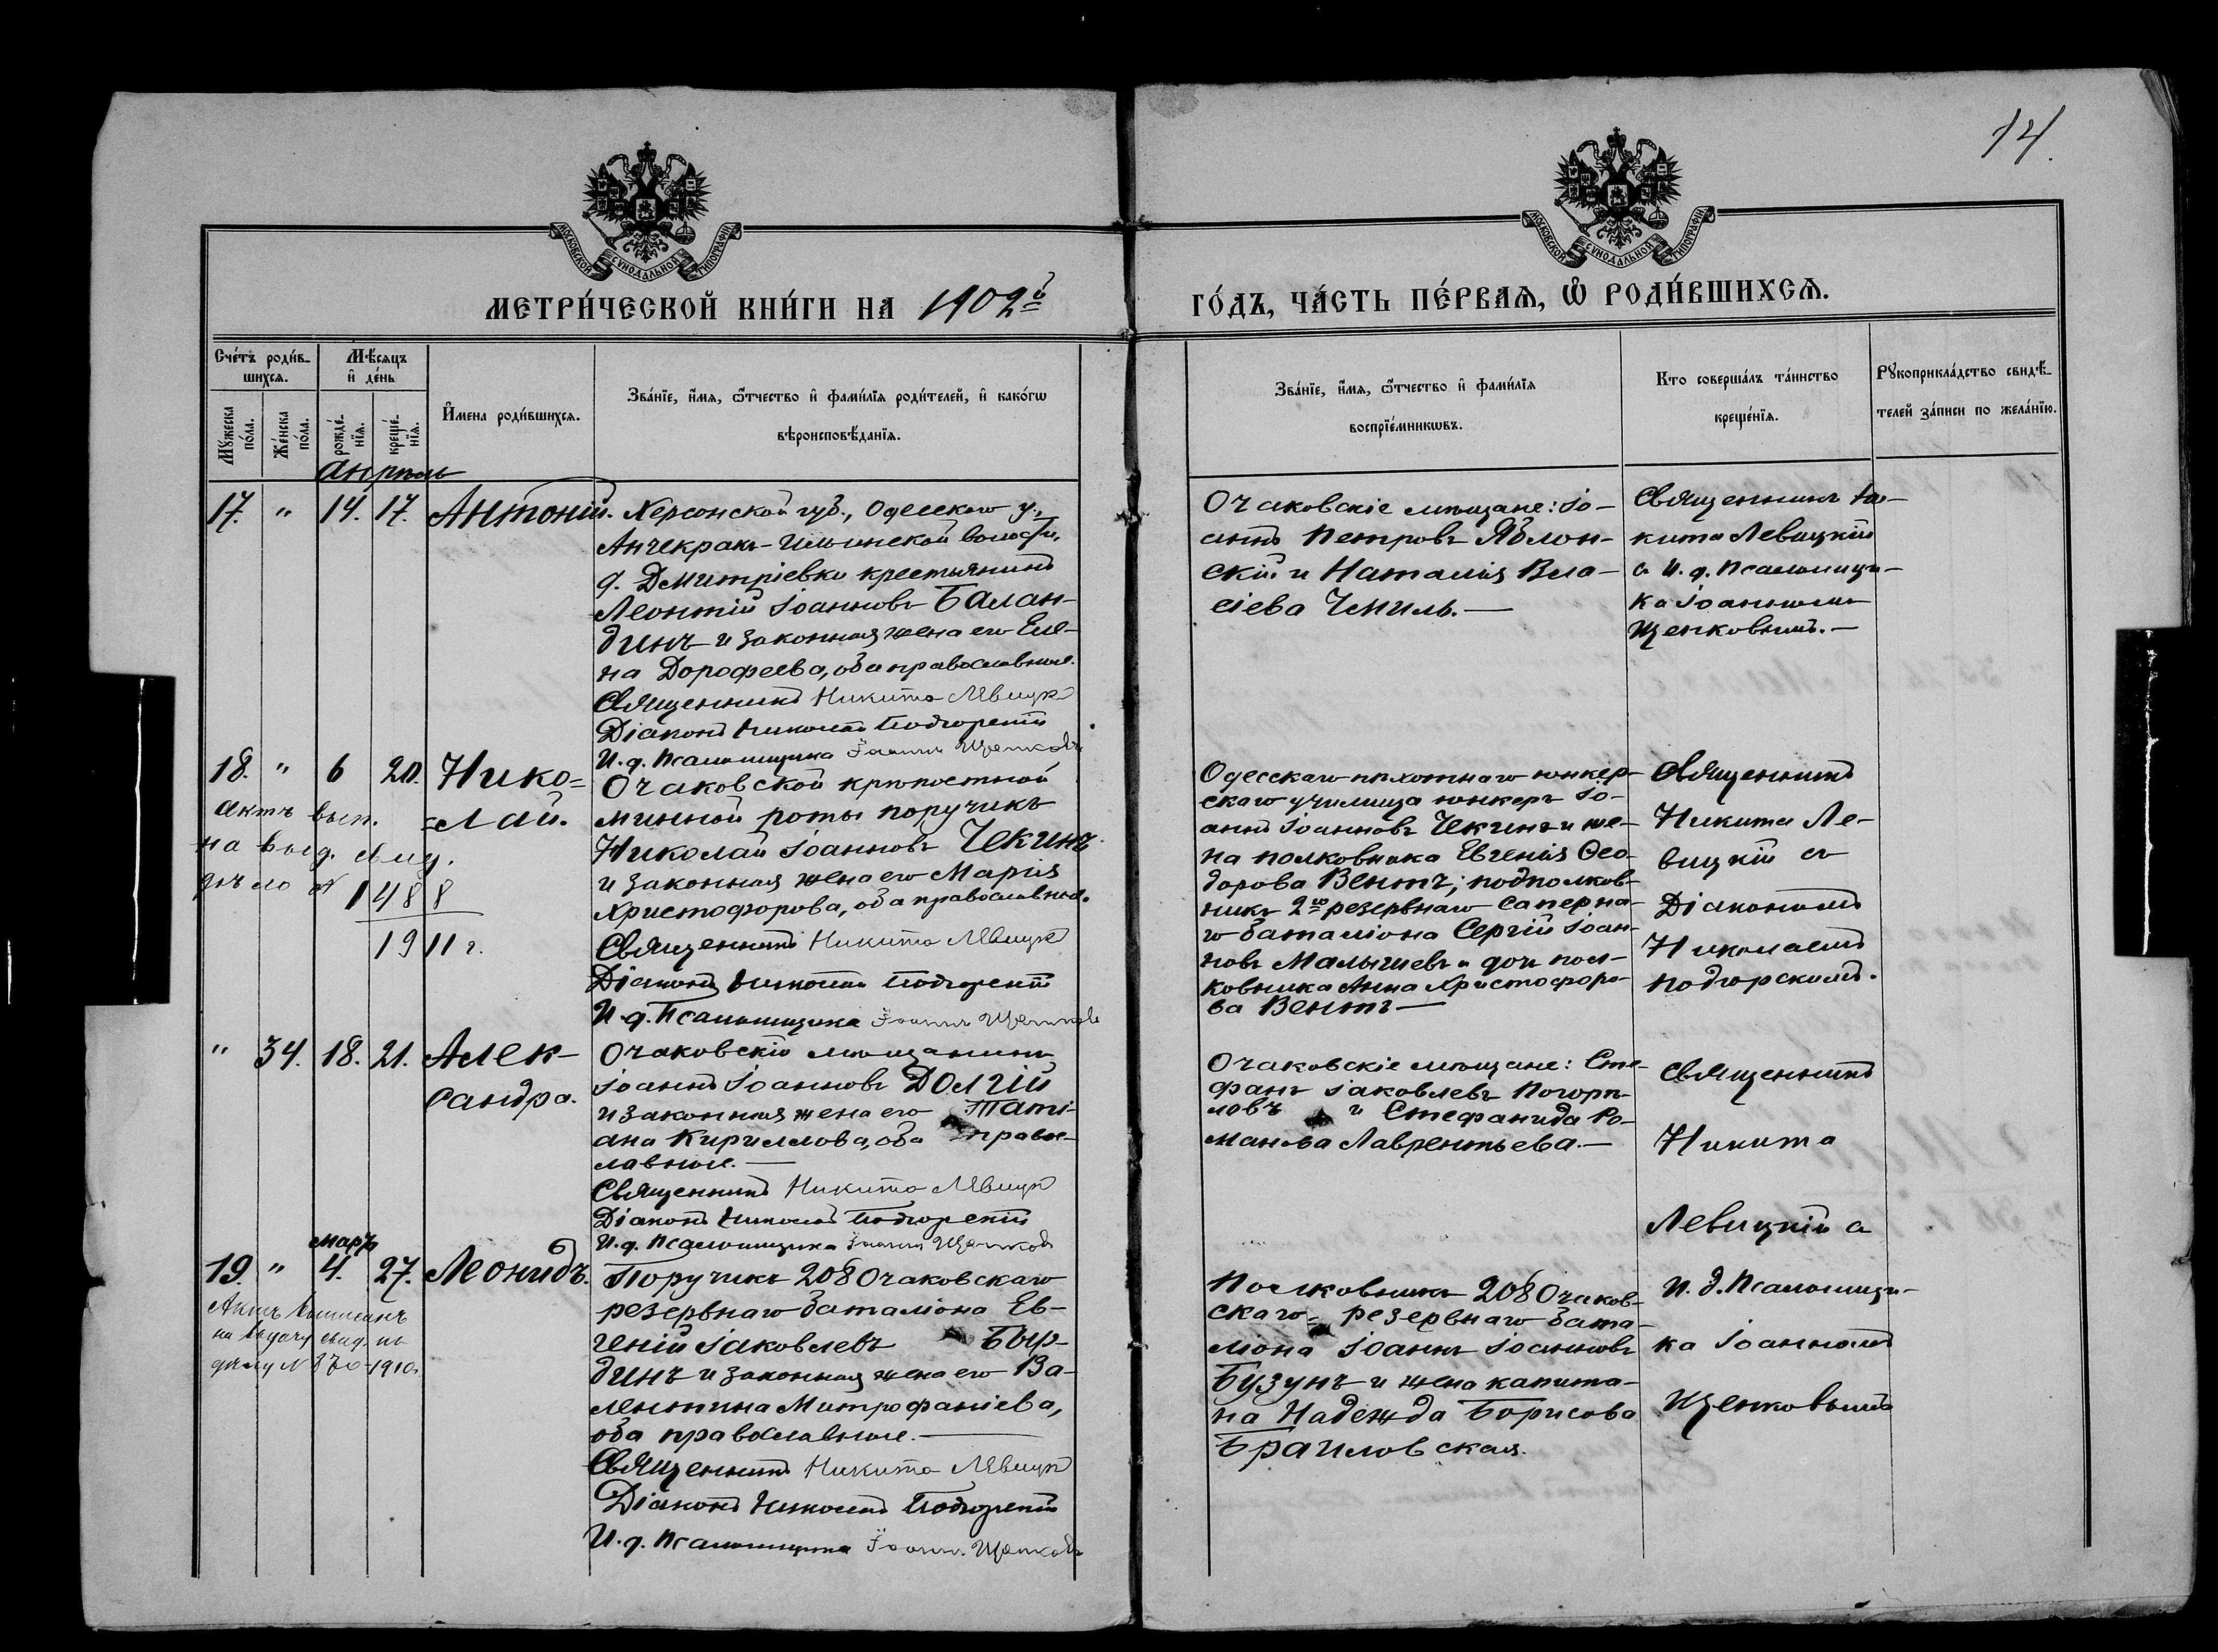 14.
МОСКОВСКОЙ СУНОДАЛЬНОЙ ТИПОГРАФІИ
МОСКОВСКОЙ СУНОДАЛЬНОЙ ТИПОГРАФІИ
МЕТРИ́ЧЕСКОЙ КНИ́ГИ НА 1902й
ГО́ДЪ, ЧА́СТЬ ПЕ́РВАѦ, Ѡ҆ РОДИ́ВШИХСѦ.
Сче́тъ роди́в-
шихсѧ.
Мꙋжеска по́ла.
Же́нска по́ла.
Мѣ́сѧцъ
и҆ де́нь
рожде́-
нїѧ.
креще́-
нїѧ.
И҆мена роди́вшихсѧ.
Зва́нїе, и҆́мѧ, ѻ҆́тчество и҆ фами́лїѧ роди́телей, и҆ како́гѡ
вѣроисповѣ́данїѧ.
Зва́нїе, и҆́мѧ, ѻ҆́тчество и҆ фами́лїѧ
воспрїе́мникѡвъ.
Кто соверша́лъ та́инство
креще́нїѧ.
Рꙋкоприкла́дство свидѣ́-
телей за́писи по жела́нїю.
апрѣль
17. " 14. 17. Антоній.
Херсонской губ., Одесскаго у.,
Анчекрак-Ильинской волости,
д. Дмитріевки крестьянинъ
Леонтій Іоанновъ Балан-
динъ и законная жена его Еле-
на Дорофеева, оба православные.
Священникъ Никита Левицкі
Діаконъ Николай Подгорскій
И. д. Псаломщика Іоаннъ Щенковъ
Очаковскіе мѣщане: Іо-
аннъ Петровъ Яблон-
скій и Наталія Вла-
сіева Чмиль.—
Священникъ Ни-
кита Левицкій
съ И. д. Псаломщи-
ка Іоанномъ
Щенковымъ.—
18. " 6 20. Нико-
=лай.
актъ вып.
на выд. свид.
дѣло № 1488
1911 г.
Очаковской крѣпостной
минной роты поручикъ
Николай Іоанновъ Чекинъ
и законная жена его Марія
Христофорова, оба православные.
Священникъ Никита Левицкі
Діаконъ Николай Подгорскій
И. д. Псаломщика Іоаннъ Щенковъ
Одесскаго пѣхотнаго юнкер-
скаго училища юнкеръ Іо-
аннъ Іоанновъ Чекинъ и же-
на полковника Евгенія Ѳео-
дорова Вентъ; подполков-
никъ 2го резервнаго сапернa-
го баталіона Сергій Іоан-
новъ Малышевъ и дочь пол-
ковника Анна Христофоро-
ва Вентъ—
Священникъ
Никита Ле-
вицкій съ
Діакономъ
Николаемъ
Подгорскимъ.
" 34. 18. 21. Алек-
сандра.
Очаковскій мѣщанинъ
Іоаннъ Іоанновъ Долгій
и законная жена его Таті-
ана Кириллова, оба право-
славные.—
Священникъ Никита Левицкі
Діаконъ Николай Подгорскій
И. д. Псаломщика Іоаннъ Щенковъ
Очаковскіе мѣщане: Сте-
фанъ Іаковлевъ Погорѣ-
ловъ и Стефанида Ро-
манова Лаврентьева.—
Священникъ
Никита
Левицкій съ
И. д. Псаломщи-
ка Іоанномъ
Щенковымъ
мартъ
19. " 4. 27. Леонидъ.
Актъ выписанъ
на выдачу свид. по
дѣлу № 1910.
Поручикъ 208 Очаковскаго
резервнаго баталіона Ев-
геній Іаковлевъ Быр-
динъ и законная жена его Ва-
лентина Митрофаніева,
оба православные.—
Священникъ Никита Левицкі
Діаконъ Николай Подгорскій
И. д. Псаломщика Іоаннъ Щенковъ
Полковникъ 208 Очаков-
скаго резервнаго бата-
ліона Іоаннъ Іоанновъ
Бузунъ и жена капита-
на Надежда Борисова
Браиловская.